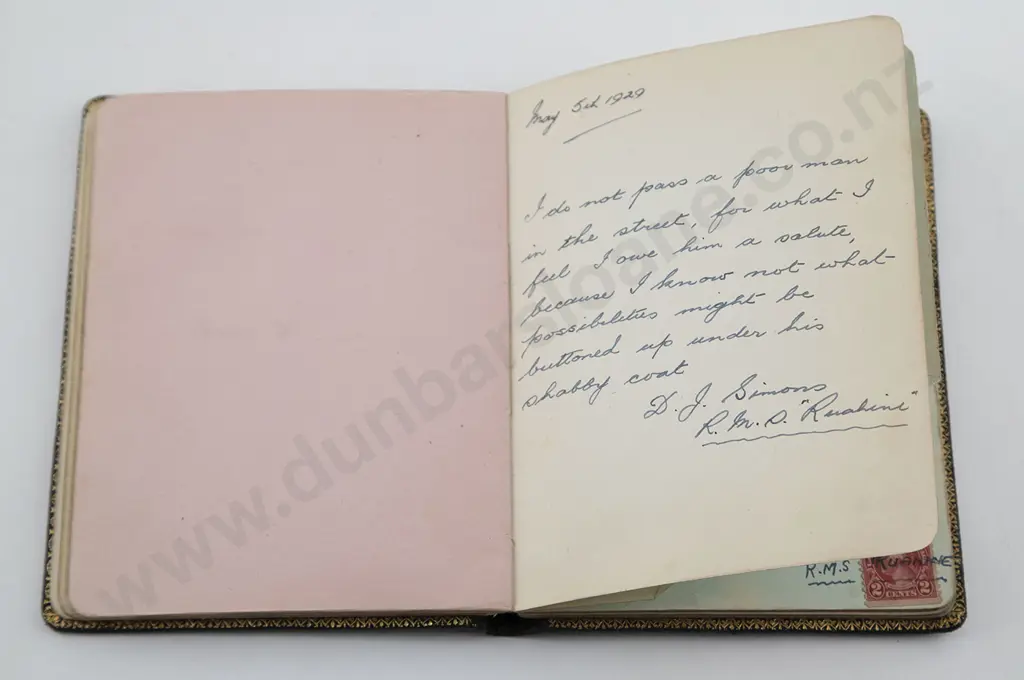 May 5th 1929
I do not pass a poor man
in the street, for what I
feel I owe him a salute,
because I know not what
possibilities might be
buttoned up under his
shabby coat
D. J. Simons
R. M. S. "Ruahine"
R.M.S "RUAHINE
2 CENTS 2
www.dunbarsloane.co.nz